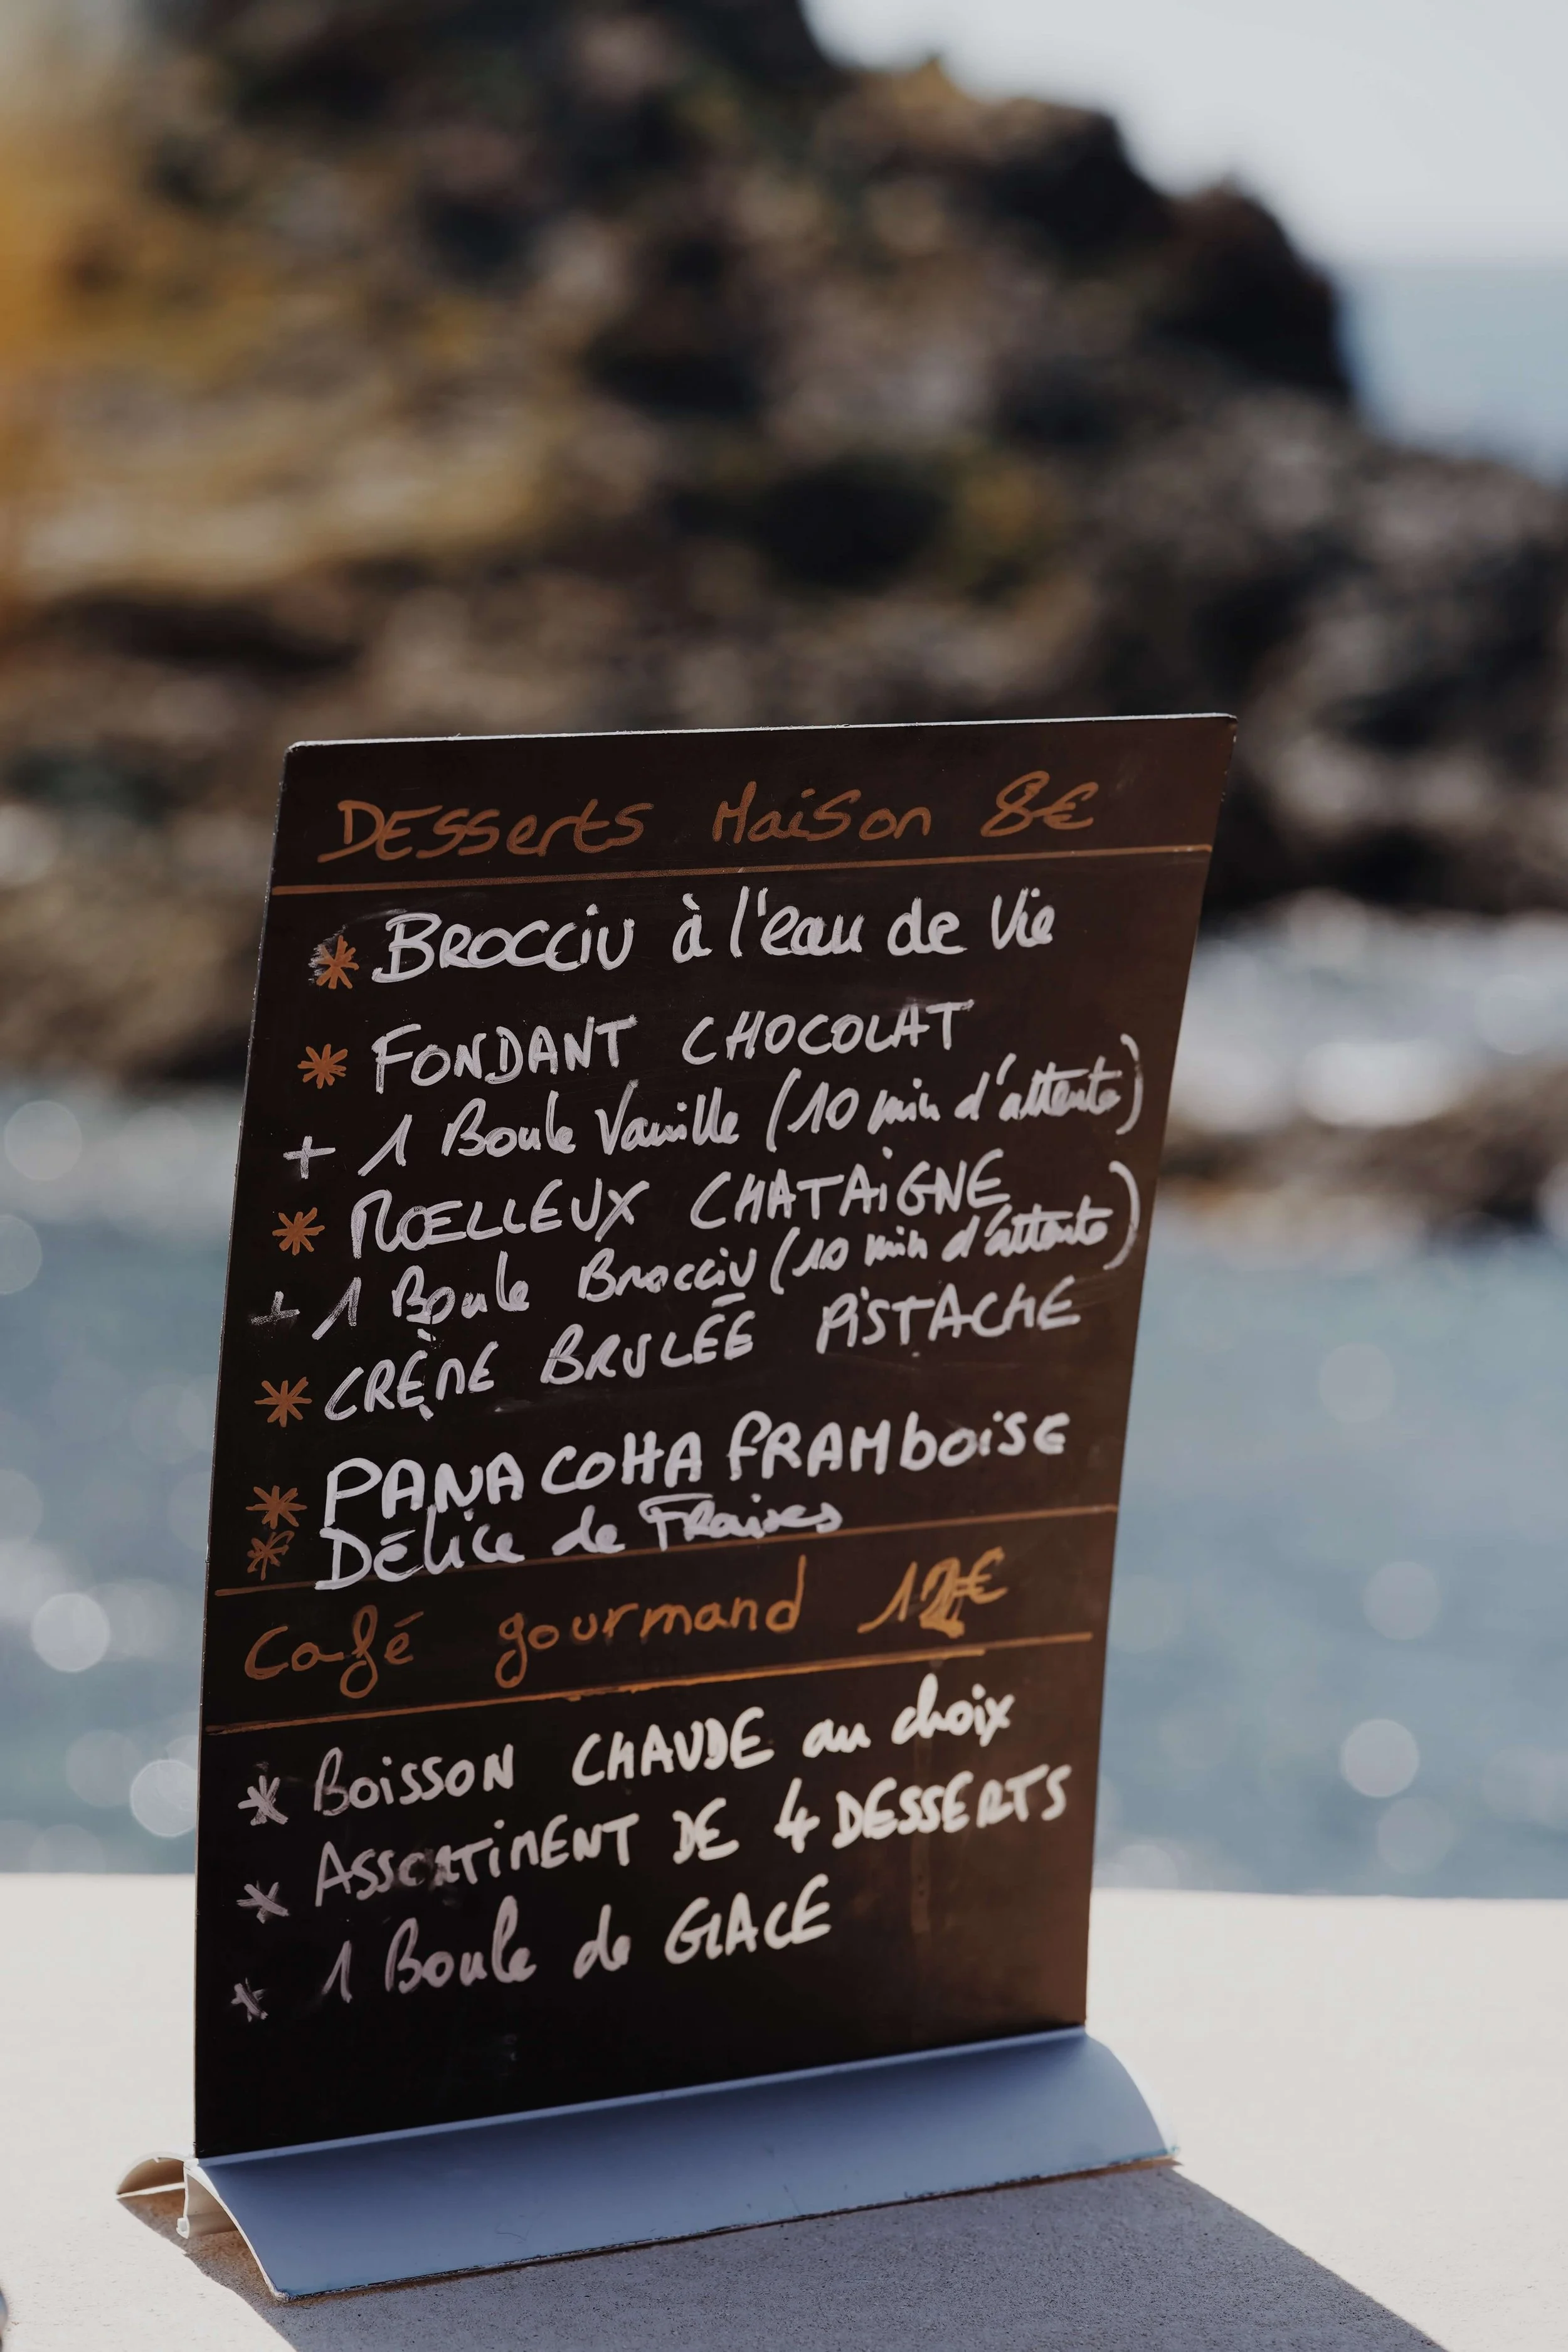 Desserts Maison 8€
* Brocciu à l'eau de Vie
* FONDANT CHOCOLAT
+ 1 Boule Vanille (10 min d'attente)
* MOELLEUX CHATAIGNE
+ 1 Boule Brocciu (10 min d'attente)
* CRÈME BRULÉE PISTACHE
* PANA COTTA FRAMboiSE
* Délice de Fraises
Café gourmand 12€
* BOISSON CHAUDE au choix
* ASSORTIMENT DE 4 DESSERTS
* 1 Boule de GLACE